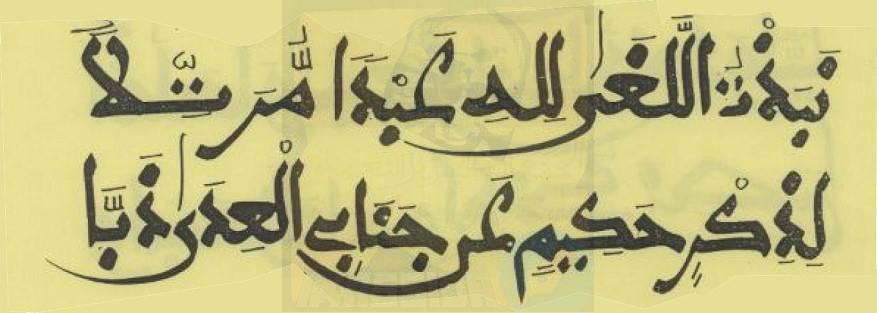 نَبَذْتُ اللَّغَىٰ لِلهِ عَبْدًا مُّرَتِّلاً
لِذِكْرٍ حَكِيمٍ عَن جَنَابِي الْعِدَىٰ ذَبَّا